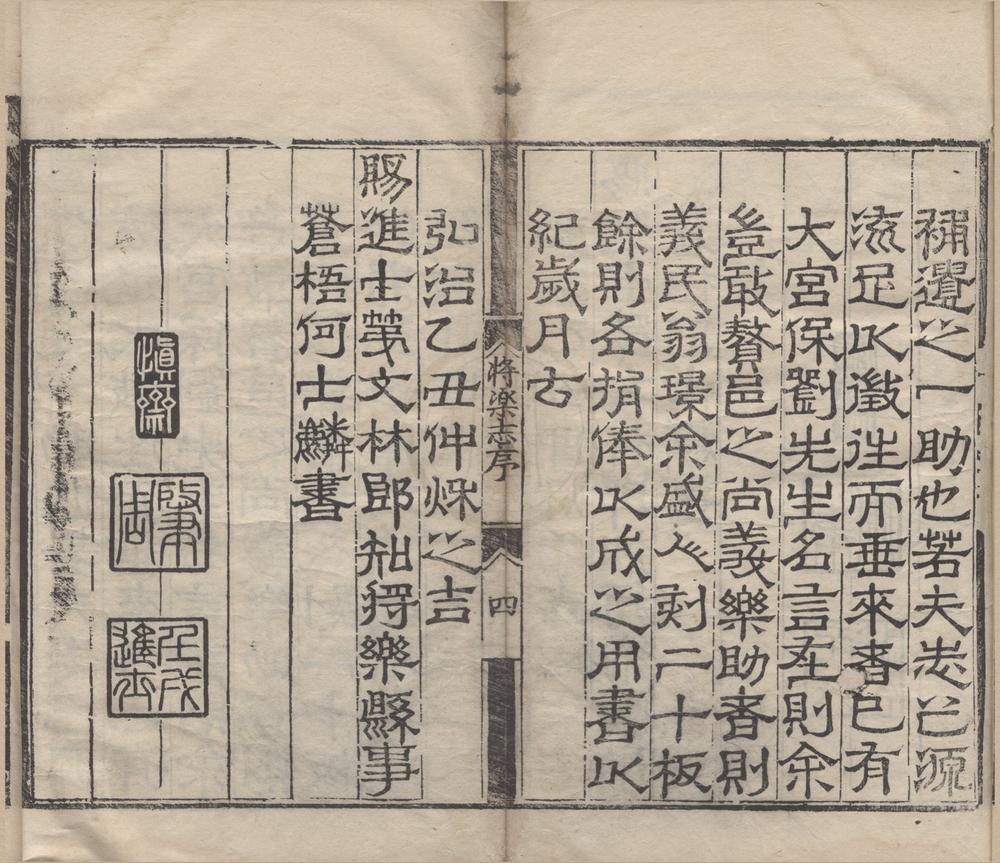 補遺之一助也若夫志之源
流足以徵徃而垂來者已有
大宮保劉先生名言在則余
豈敢贅邑之尚義樂助者則
義民翁璟余盛人刻二十板
餘則各捐俸以成之用書以
紀歲月云
将楽志序
四
弘治乙丑仲秋之吉
賜進士第文林郎知將樂縣事
蒼梧何士麟書
慎齋
肇周
壬戌進士